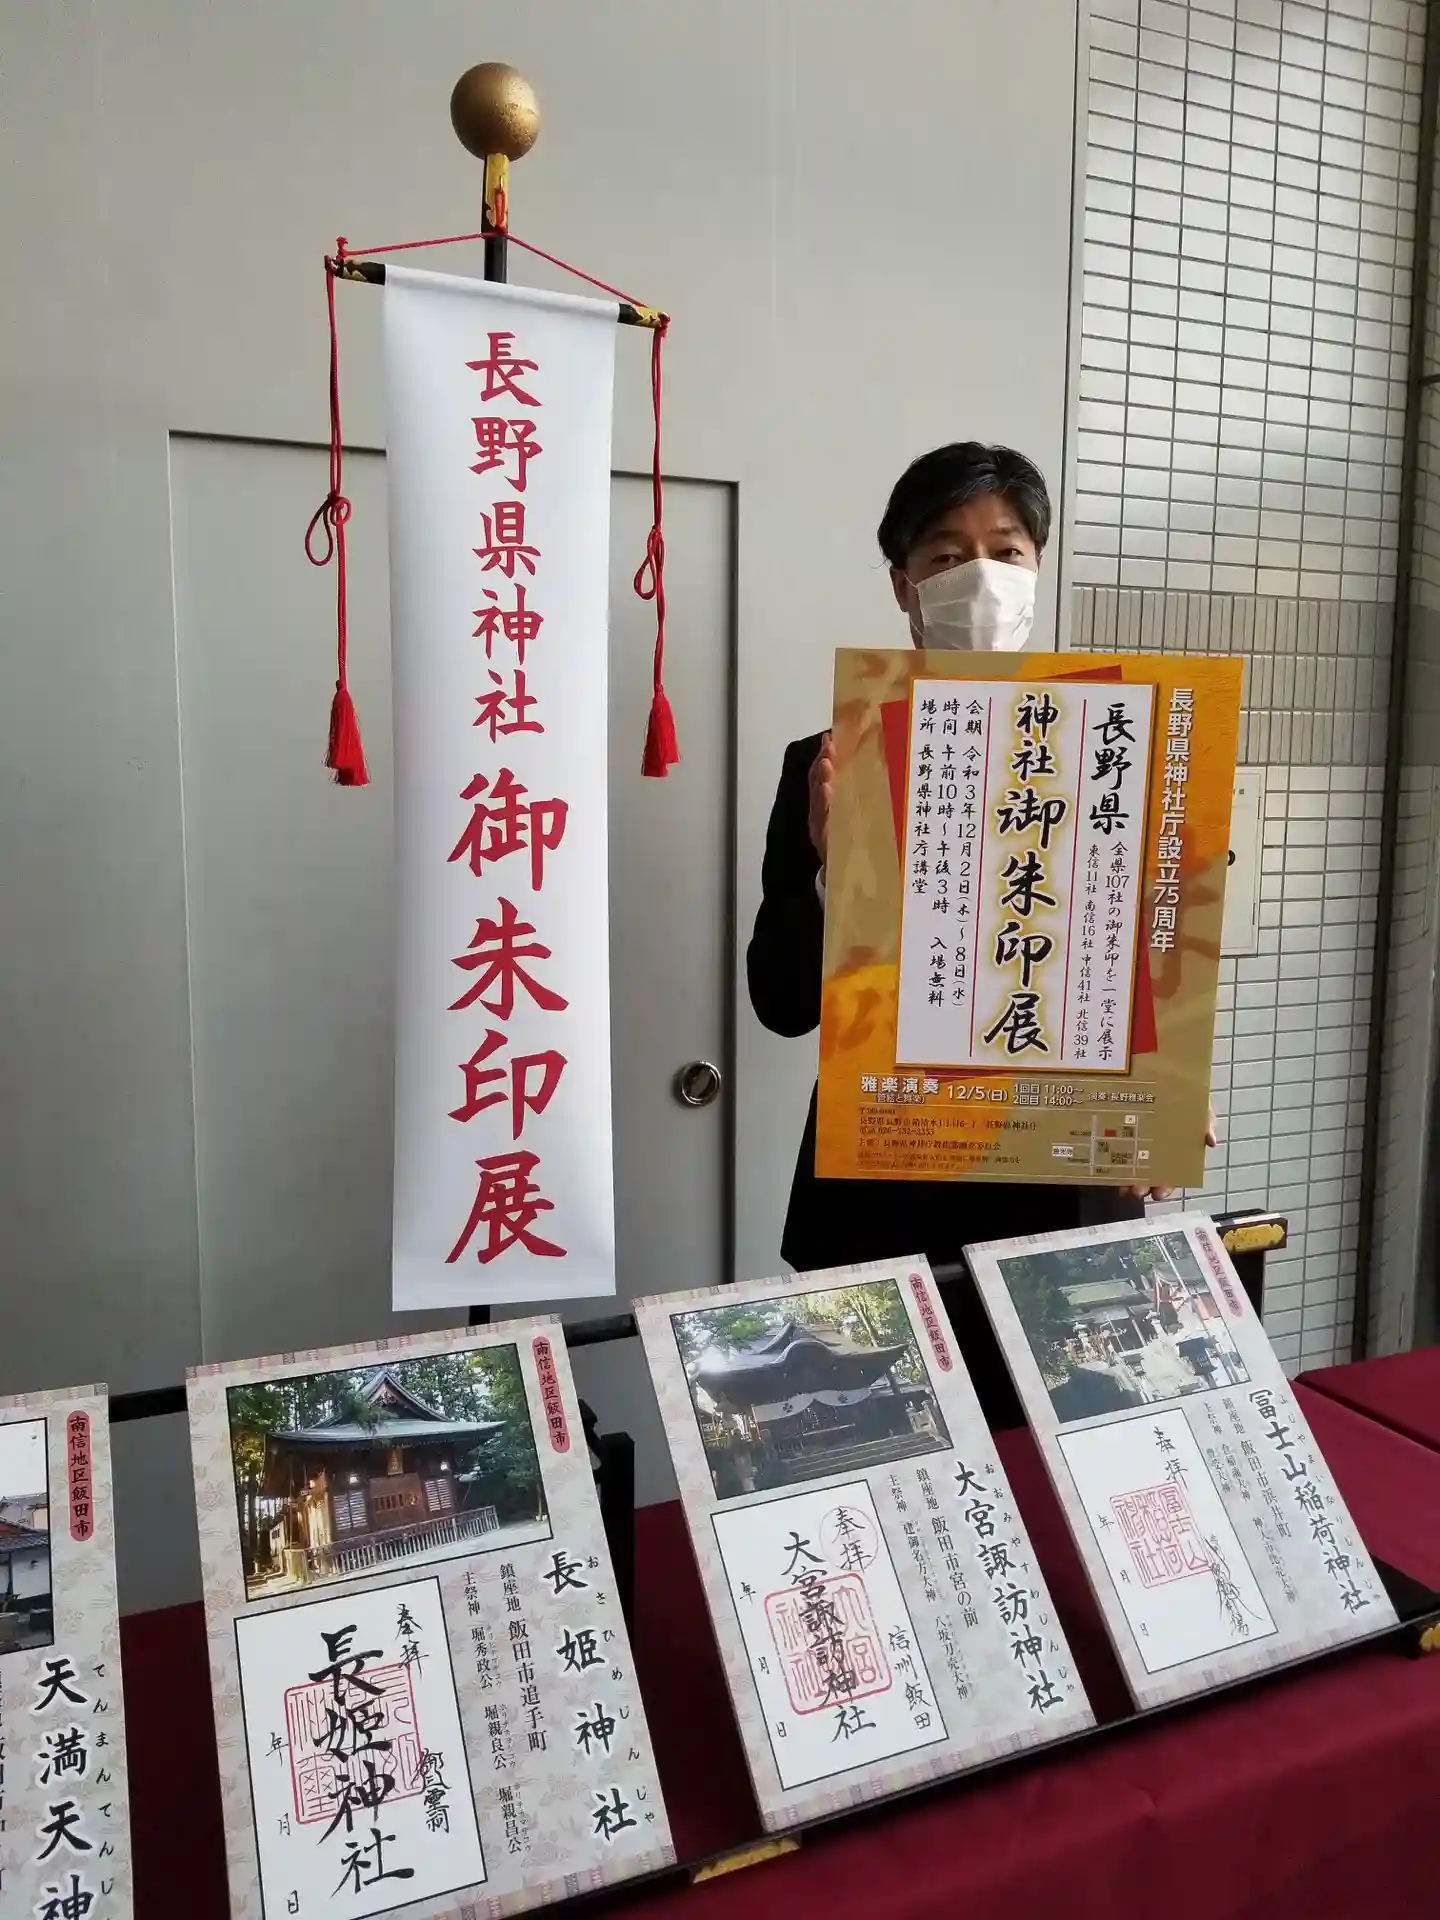 長野県神社 御朱印展
長野県神社庁設立75周年
長野県
全県107社の御朱印を一堂に展示
東信11社 南信16社 中信41社 北信39社
神社御朱印展
会期 令和3年12月2日(木)~8日(水)
時間 午前10時~午後3時 入場無料
場所 長野県神社庁講堂
雅楽演奏
(管絃と舞楽)
12/5(日)
1回目 11:00~
2回目 14:00~
演奏:長野雅楽会
電話 026-232-3355
南信地区飯田市
てんまんてんじ
天満天神
南信地区飯田市
おさひめじんじゃ
長姫神社
鎮座地 飯田市追手町
主祭神 堀秀政公 堀親良公 堀親昌公
奉拝
長姫神社
年
月
日
南信地区飯田市
おおみやすわじんじゃ
大宮諏訪神社
鎮座地 飯田市宮の前
主祭神 建御名方大神 八坂刀売大神
奉拝
大宮諏訪神社
信州飯田
年
月
日
南信地区飯田市
ふじやまいなりじんじゃ
冨士山稲荷神社
鎮座地 飯田市浜井町
主祭神
奉拝
年
月
日